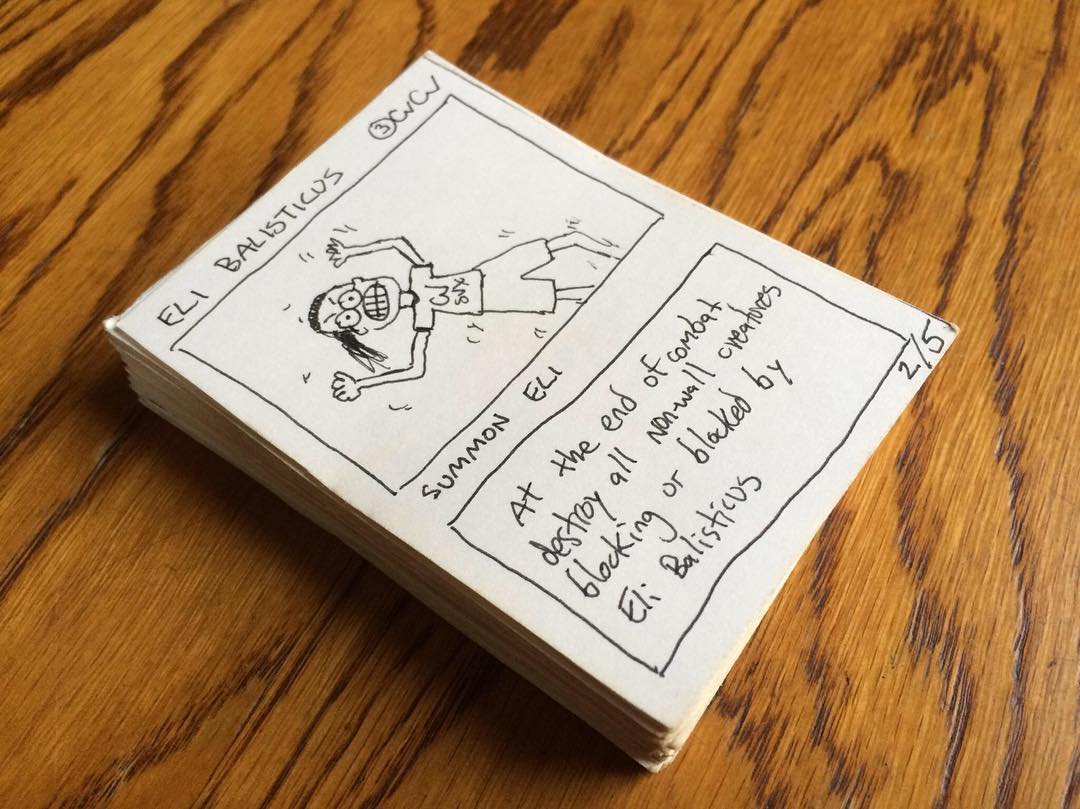 ELI BALISTICUS ③CVCV
SUMMON ELI
At the end of combat
destroy all non-wall creatures
blocking or blocked by
Eli Balisticus
2/5